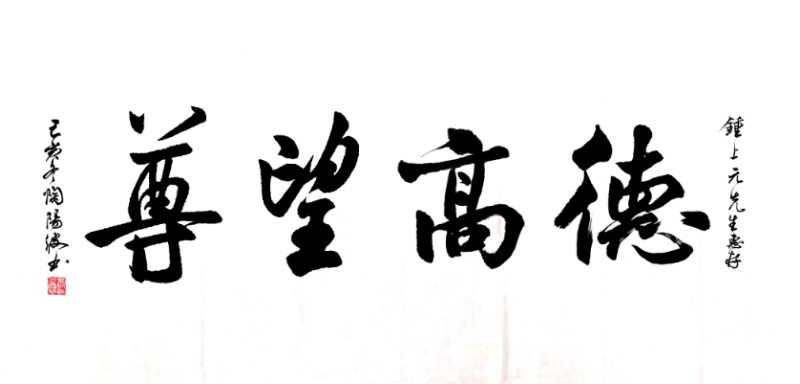 鍾上元先生惠存
德高望尊
己亥年陶陽波书